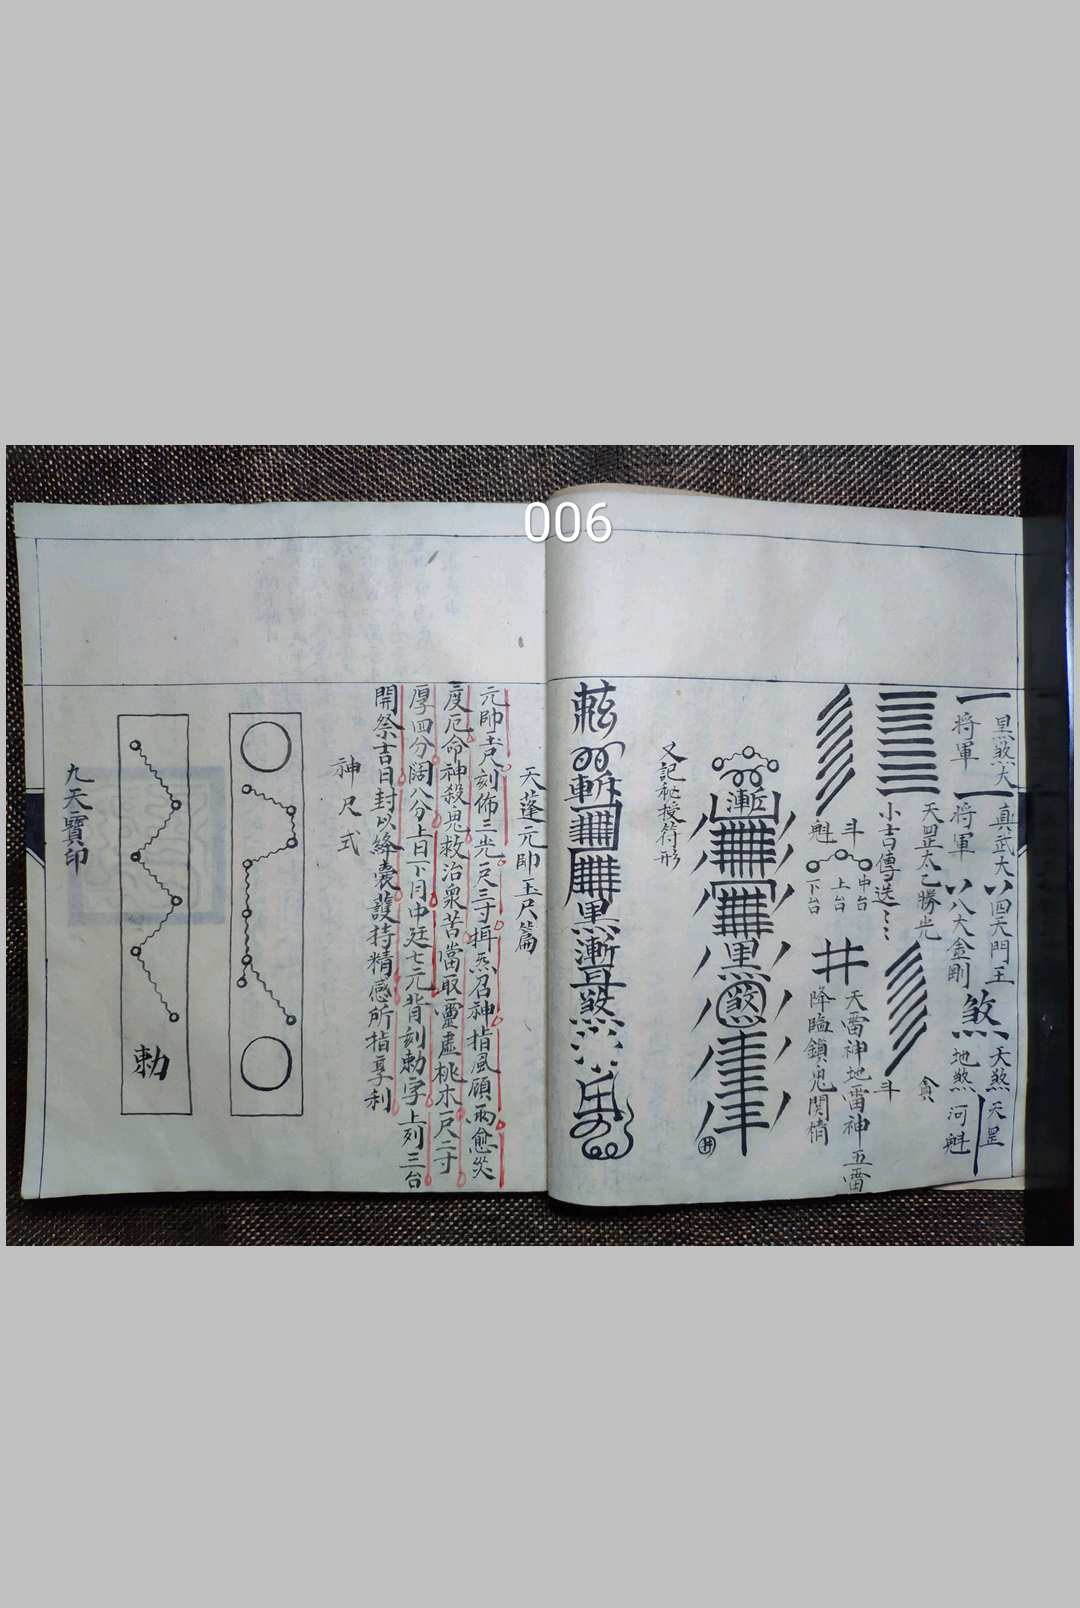 006
一 黑煞大將軍
一 真武大將軍
八 四天門王
八大金剛
煞 天煞 地煞
天罡 河魁
天罡太乙勝光
小吉傳送
貪
斗
斗
魁
中台
上台
下台
井
天雷神地雷神五雷
降臨鎖鬼関
漸
黑
煞
井
又記秘授符形
斬
黑
漸
耳
煞
天蓬元帥玉尺篇
元帥玉尺刻佈三光一尺三寸揖炁召神指風願雨愈災
度厄命神殺鬼救治衆苦當取靈虛桃木一尺二寸
厚四分闊八分上日下月中廷七元背刻勅字上列三台
開祭吉日封以絳囊護持精感所指享利
神尺式
勅
九天寶印